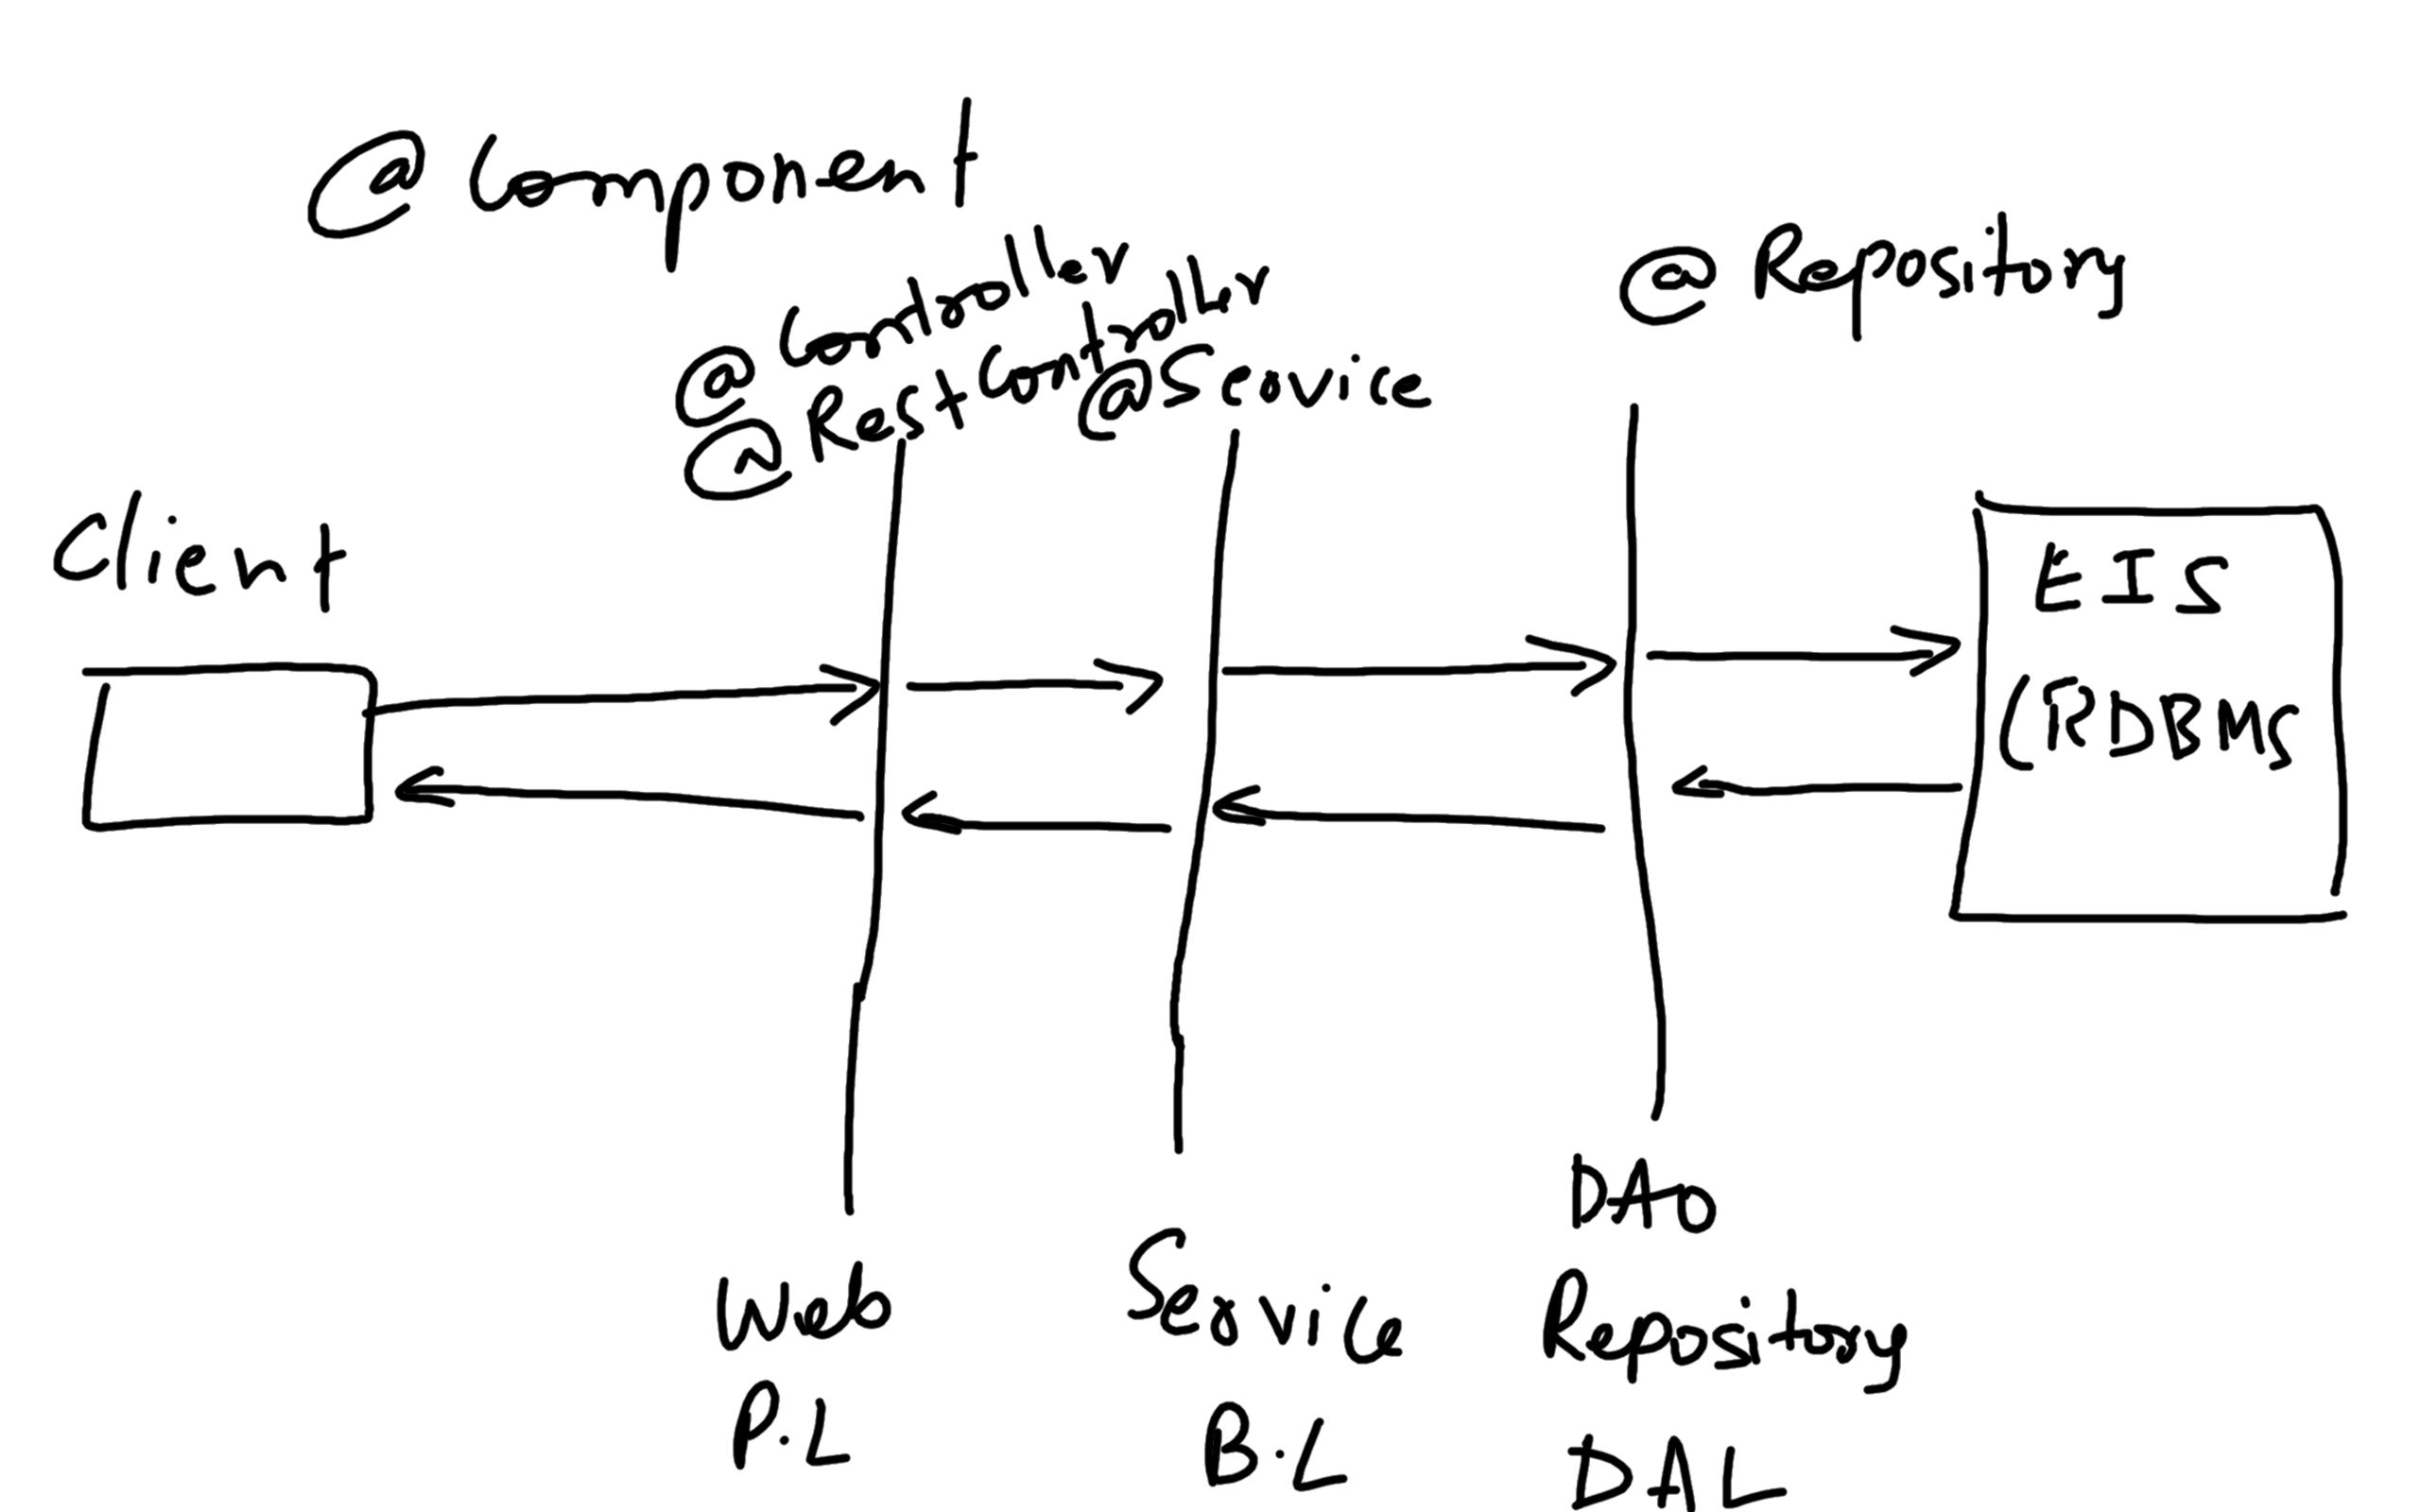 @Component
@Controller
@RestController
@Service
@Repository
Client
EIS
(RDBMS
Web
P.L
Service
B.L
DAO
Repository
DAL